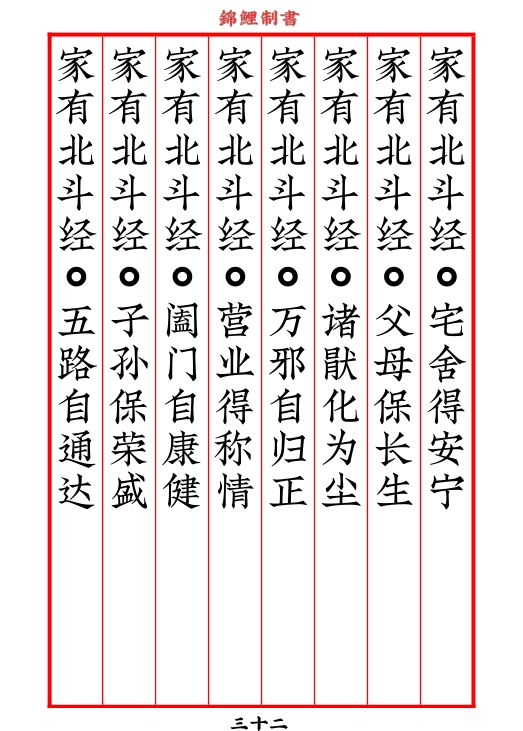 錦鲤制書
家有北斗经。宅舍得安宁
家有北斗经。父母保长生
家有北斗经。诸猒化为尘
家有北斗经。万邪自归正
家有北斗经。营业得称情
家有北斗经。阖门自康健
家有北斗经。子孙保荣盛
家有北斗经。五路自通达
三十二